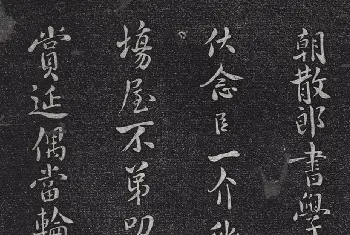 朝散郎書學
伏念臣一介
塲屋不弟叨
賞延偶當輪